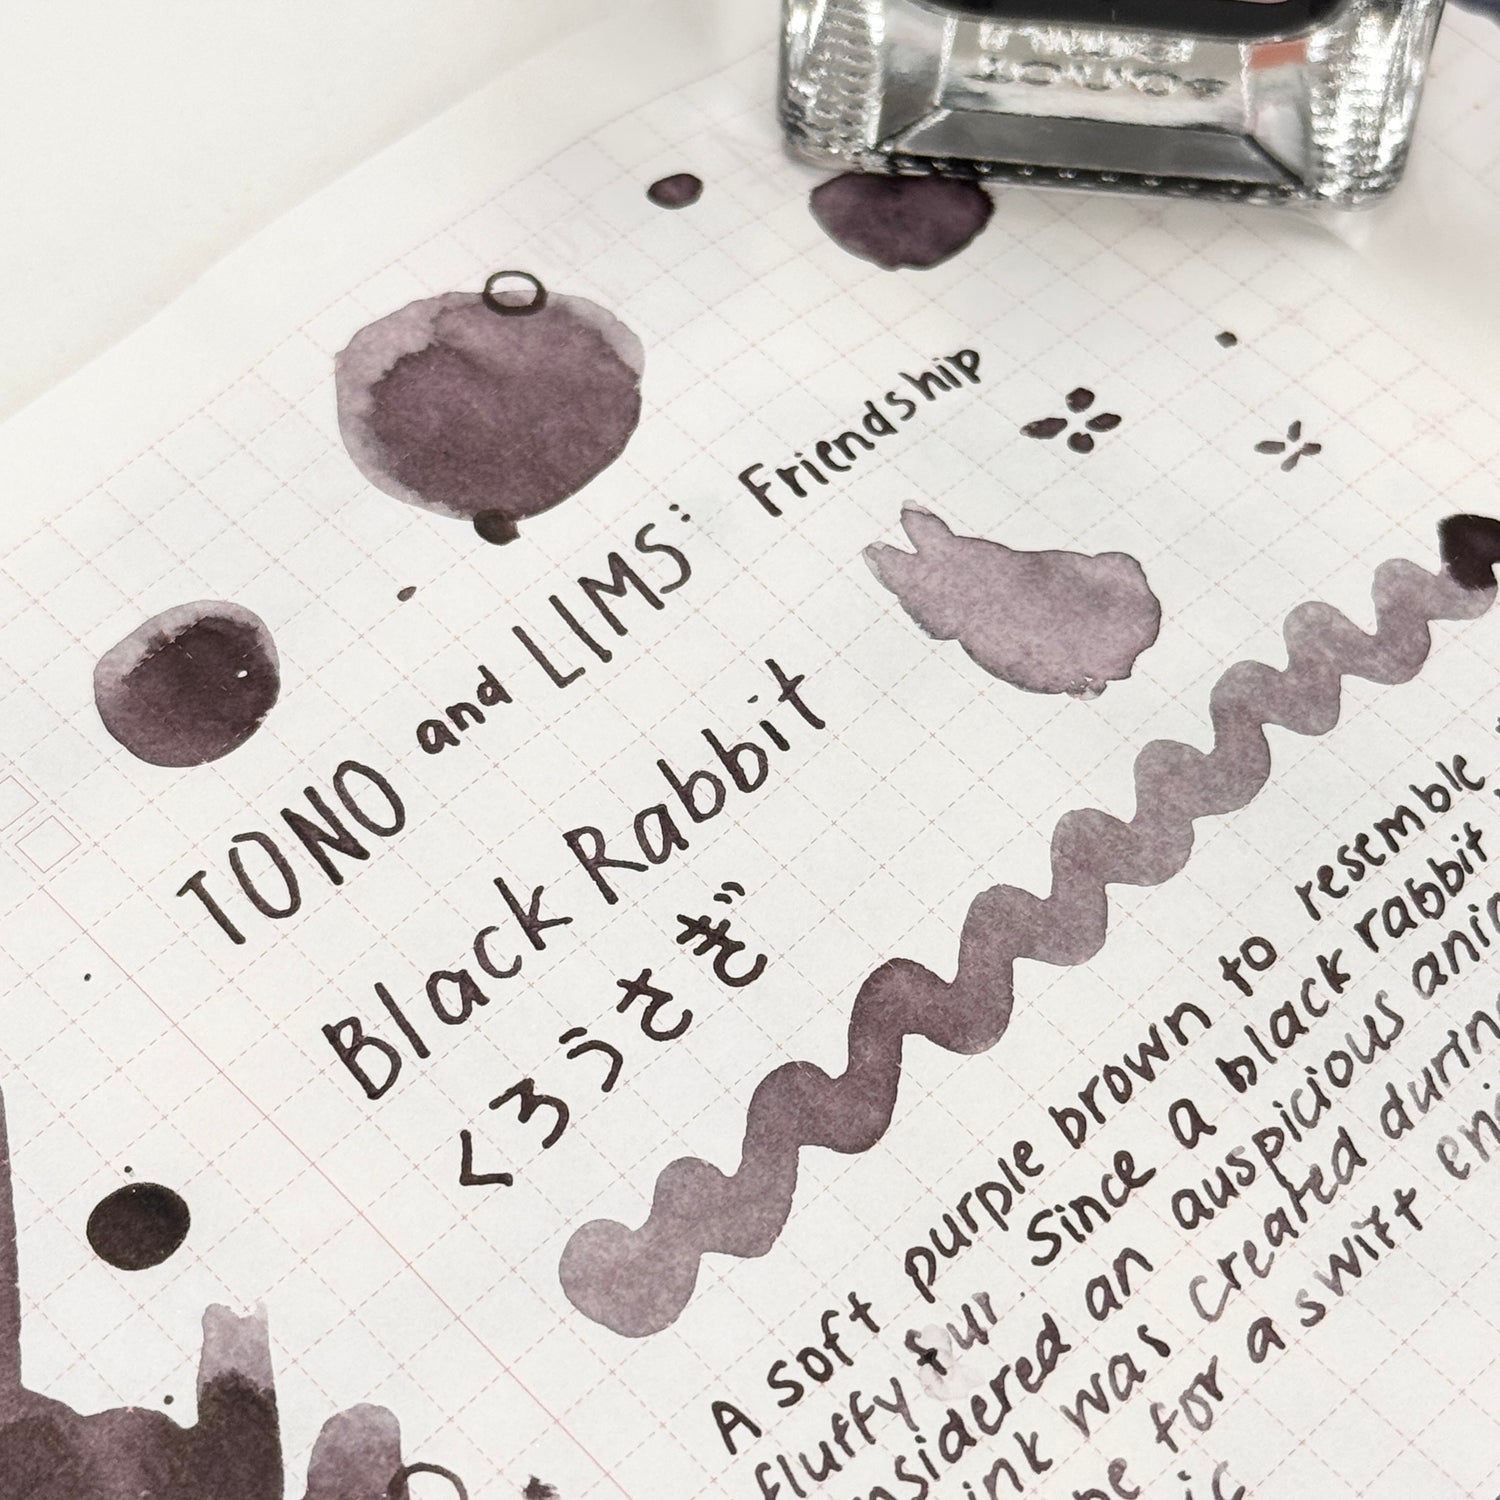 TONO and LIMS: Friendship
Black Rabbit
くろうさぎ
A soft purple brown to resemble
fluffy fur. Since a black rabbit
nsidered an auspicious
ink was created
for a swift